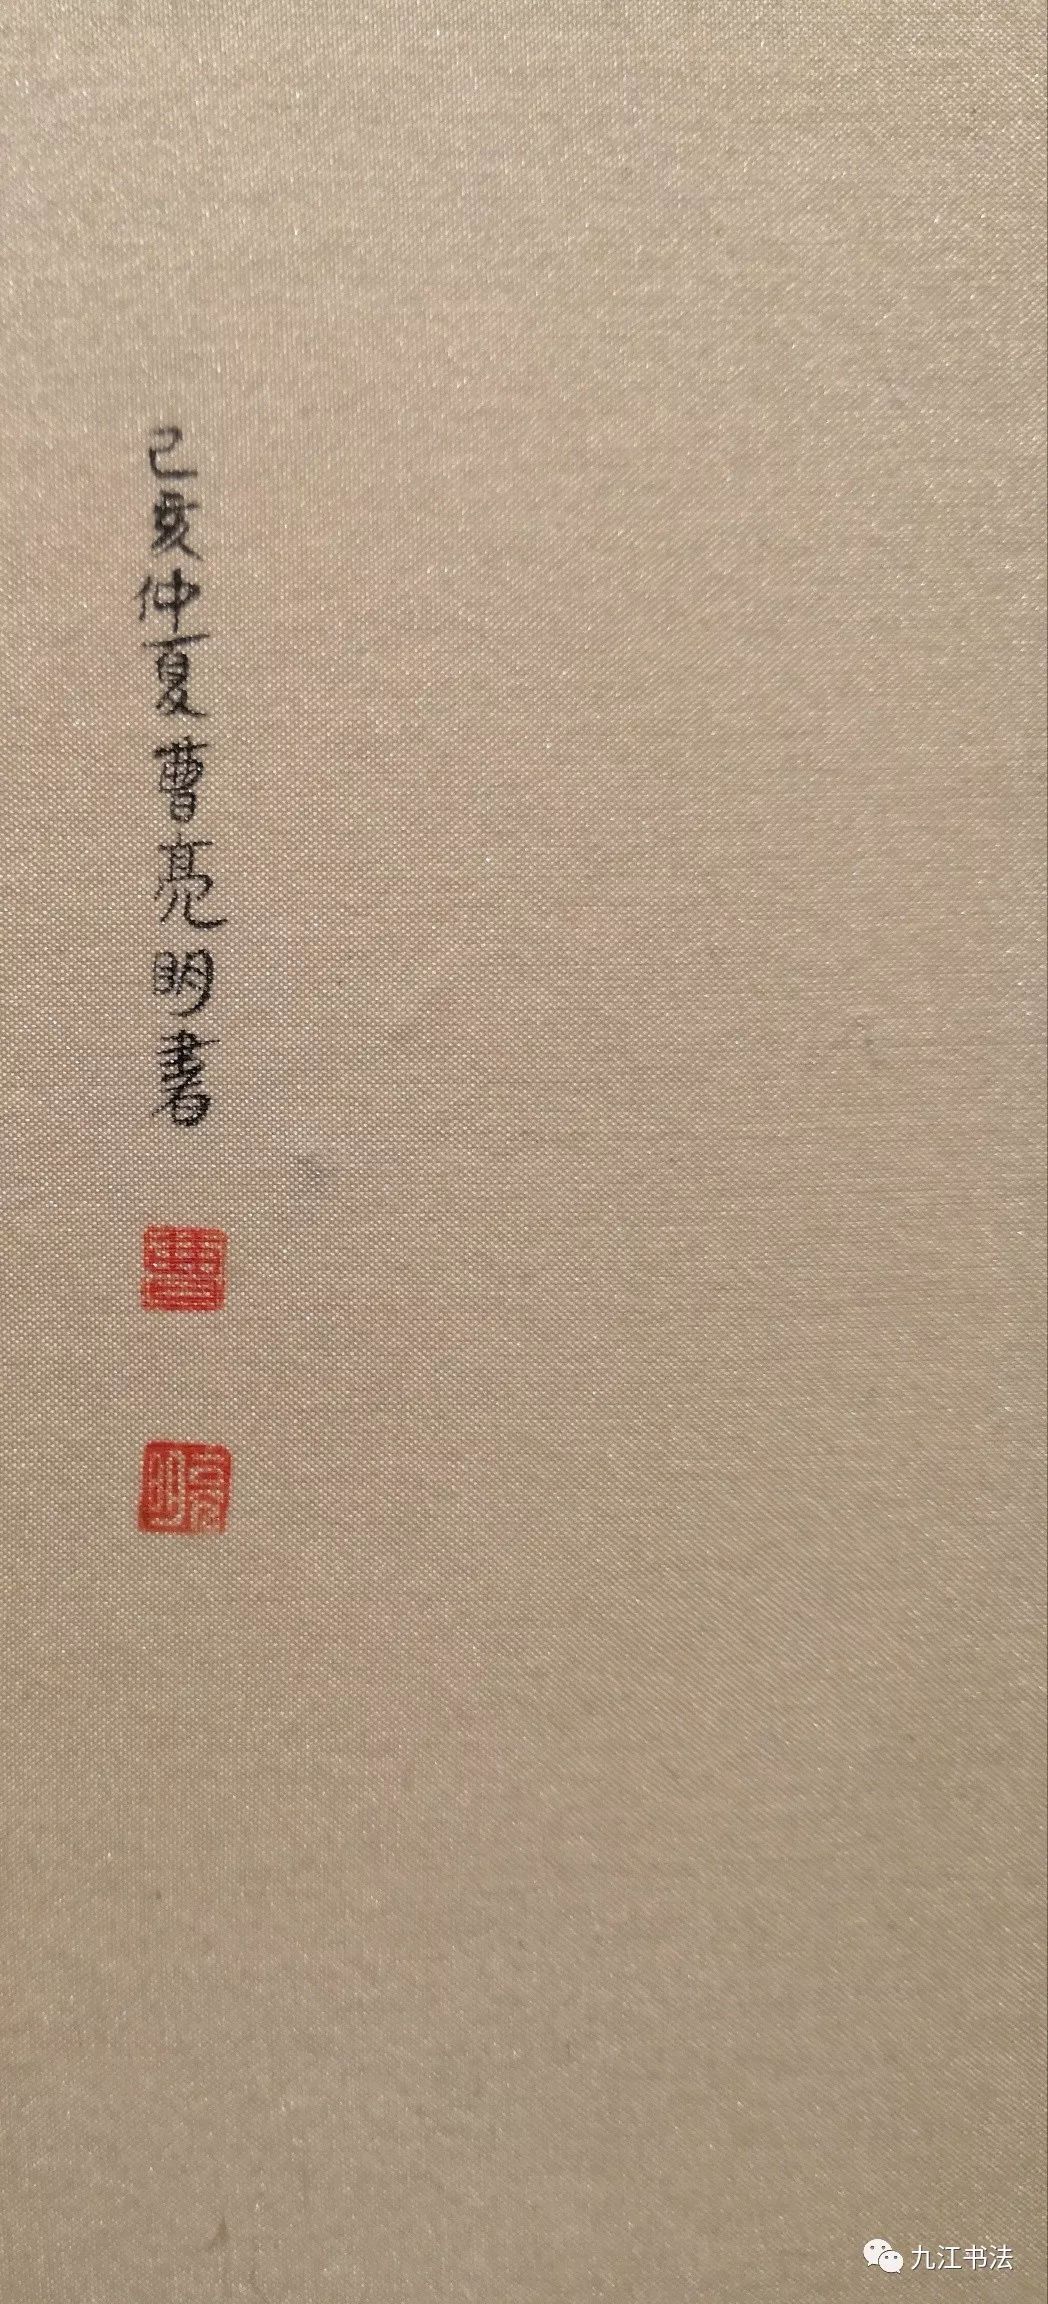 己亥仲夏曹亮明書
曹
亮明
九江书法